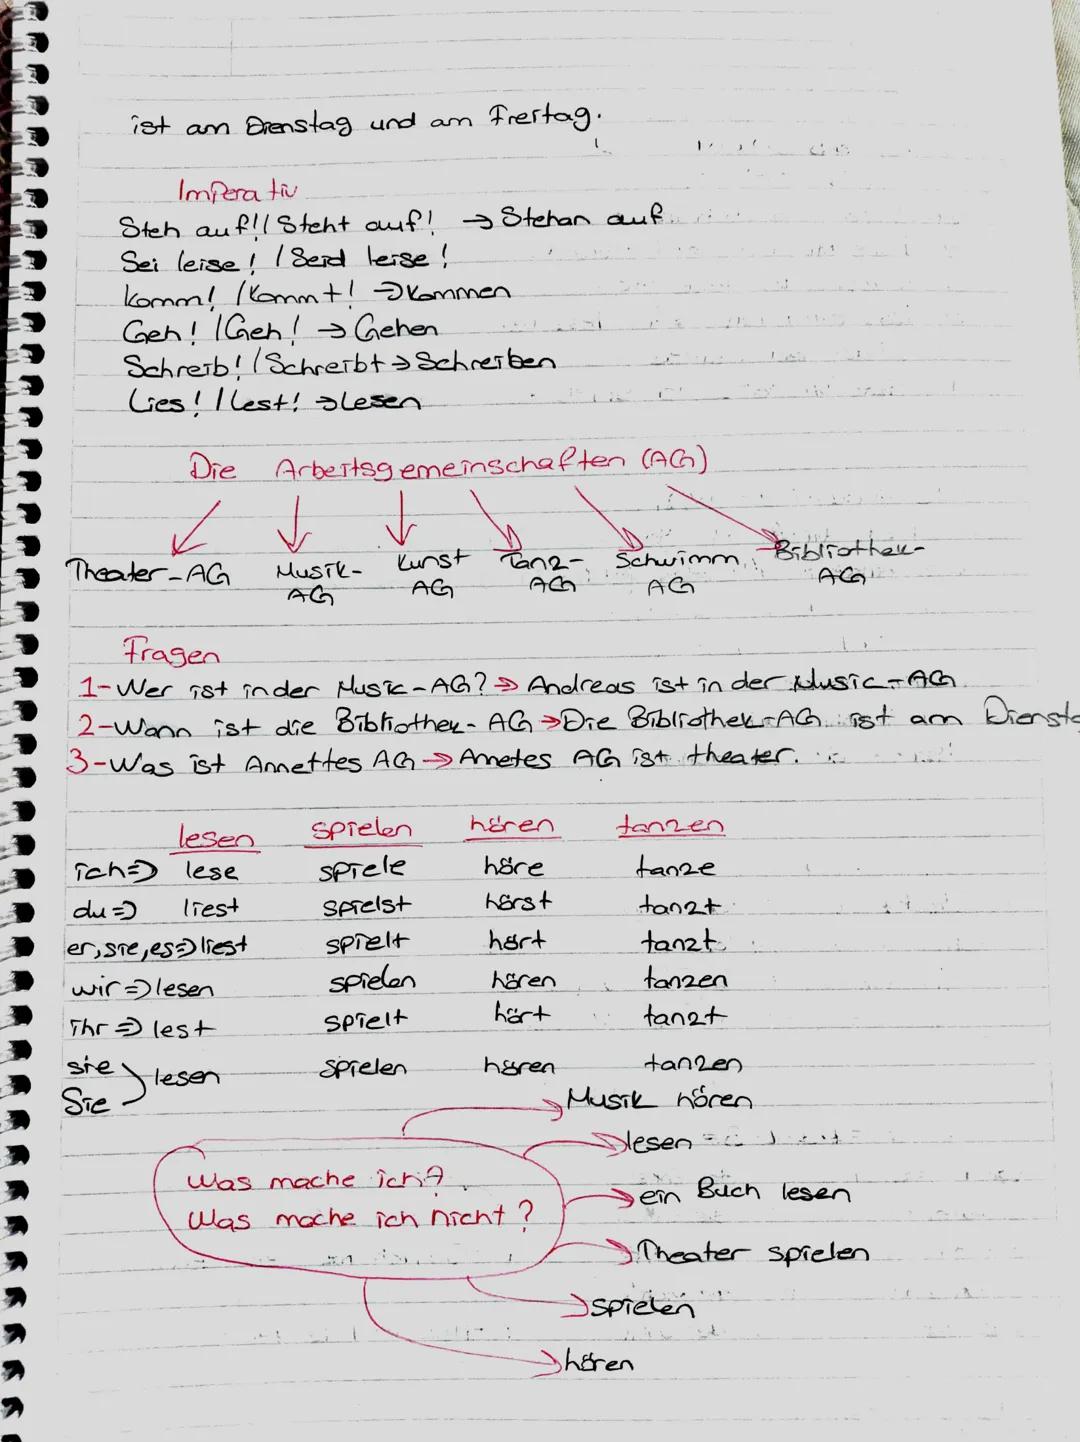 ist am Dienstag und am Freitag.
Imperativ
Steh auf!/ Steht auf! → Stehan auf
Sei leise! / Seid leise!
Komm! /Kommt! → Kommen
Geh! /Geh! → Gehen
Schreib! /Schreibt → Schreiben
Lies! / lest! → Lesen
Die Arbeitsgemeinschaften (AG)
Theater-AG Musik-AG Kunst AG Tanz-AG Schwimm AG Bibliothek-AG
Fragen
1-Wer ist in der Music-AG? → Andreas ist in der Music-AG.
2-Wann ist die Bibliothek-AG → Die Bibliothek-AG ist am Diensta
3-Was ist Annettes AG → Annetes AG ist theater.
lesen spielen hören tanzen
ich => lese spiele höre tanze
du => liest spielst hörst tanzt
er, sie, es => liest spielt hört tanzt
wir => lesen spielen hören tanzen
ihr => lest spielt hört tanzt
sie Sie lesen spielen hören tanzen
Musik hören
lesen
Was mache ich?
ein Buch lesen
Was mache ich nicht?
Theater spielen
spielen
hören